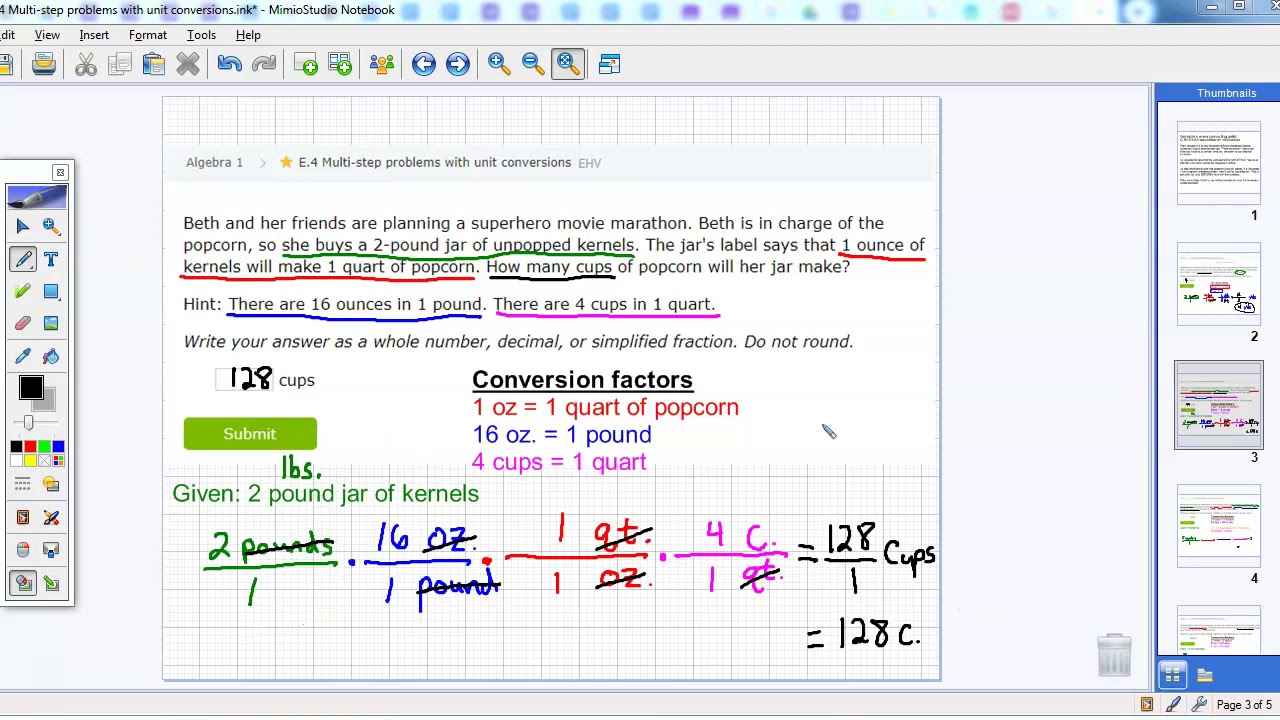 .4 Multi-step problems with unit conversions.ink* - MimioStudio Notebook
dit View Insert Format Tools Help
Thumbnails
Algebra 1 > E.4 Multi-step problems with unit conversions EHV
Beth and her friends are planning a superhero movie marathon. Beth is in charge of the
popcorn, so she buys a 2-pound jar of unpopped kernels. The jar's label says that 1 ounce of
kernels will make 1 quart of popcorn. How many cups of popcorn will her jar make?
Hint: There are 16 ounces in 1 pound. There are 4 cups in 1 quart.
Write your answer as a whole number, decimal, or simplified fraction. Do not round.
128 cups
Conversion factors
1 oz = 1 quart of popcorn
16 oz. = 1 pound
4 cups = 1 quart
Submit
lbs.
Given: 2 pound jar of kernels
2 pounds · 16 oz. · 1 qt. · 4 c. = 128 Cups
1 1 pound 1 oz. 1 qt. 1
= 128 c.
1
2
3
4
Page 3 of 5